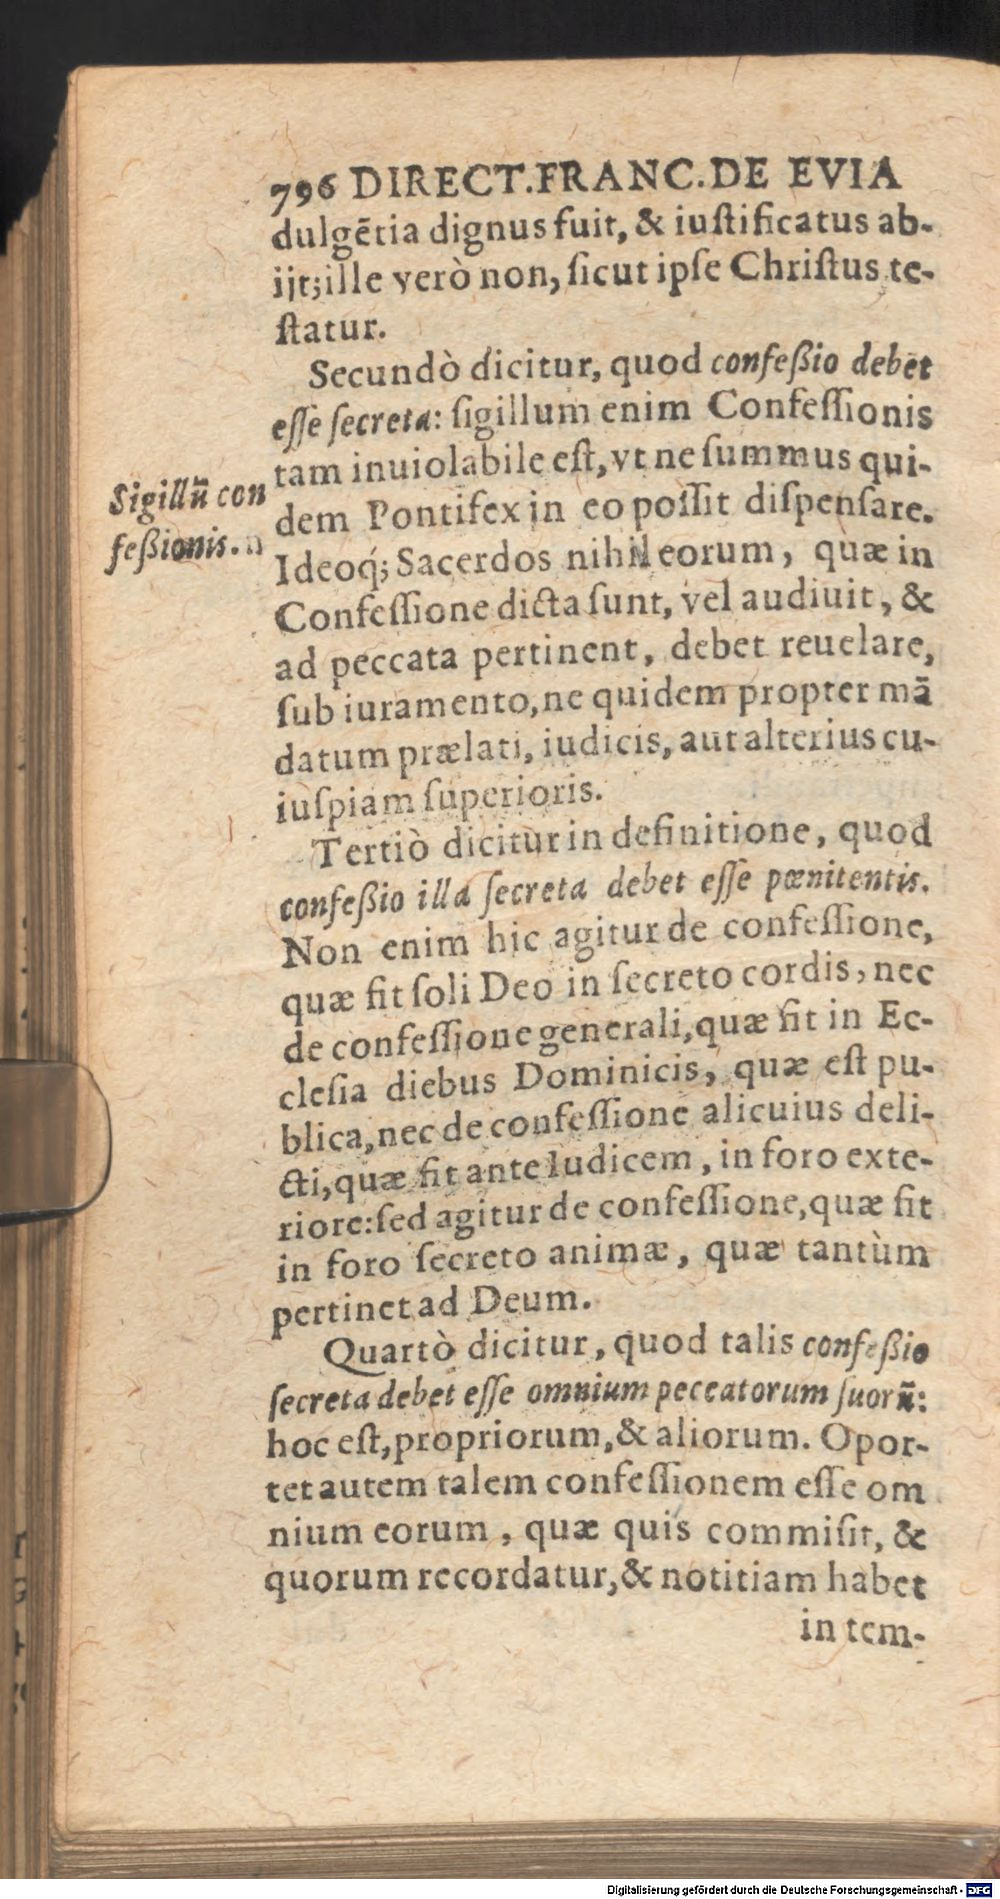 796 DIRECT.FRANC.DE EVIA
dulgẽtia dignus fuit, & iuſtificatus ab-
ijt;ille verò non, ſicut ipſe Chriſtus te-
ſtatur.
Secundò dicitur, quod confeßio debet
eſſe ſecreta: ſigillum enim Confeſſionis
tam inuiolabile eſt,vt ne ſummus qui-
Sigillũ con
feßionis.
dem Pontifex in eo poſſit diſpenſare.
Ideoq́; Sacerdos nihil eorum, quæ in
Confeſſione dicta ſunt, vel audiuit, &
ad peccata pertinent, debet reuelare,
ſub iuramento,ne quidem propter mã
datum prælati, iudicis, aut alterius cu-
iuſpiam ſuperioris.
Tertiò dicitur in definitione, quod
confeßio illa ſecreta debet eſſe pœnitentis.
Non enim hic agitur de confeſſione,
quæ fit ſoli Deo in ſecreto cordis, nec
de confeſſione generali,quæ fit in Ec-
cleſia diebus Dominicis, quæ eſt pu-
blica,nec de confeſſione alicuius deli-
cti,quæ fit ante Iudicem, in foro exte-
riore:ſed agitur de confeſſione,quæ fit
in foro ſecreto animæ, quæ tantùm
pertinet ad Deum.
Quartò dicitur, quod talis confeßio
ſecreta debet eſſe omnium peccatorum ſuorũ:
hoc eſt,propriorum,& aliorum. Opor-
tet autem talem confeſſionem eſſe om
nium eorum, quæ quis commiſit, &
quorum recordatur,& notitiam habet
in tem-
Digitalisierung gefördert durch die Deutsche Forschungsgemeinschaft - DFG